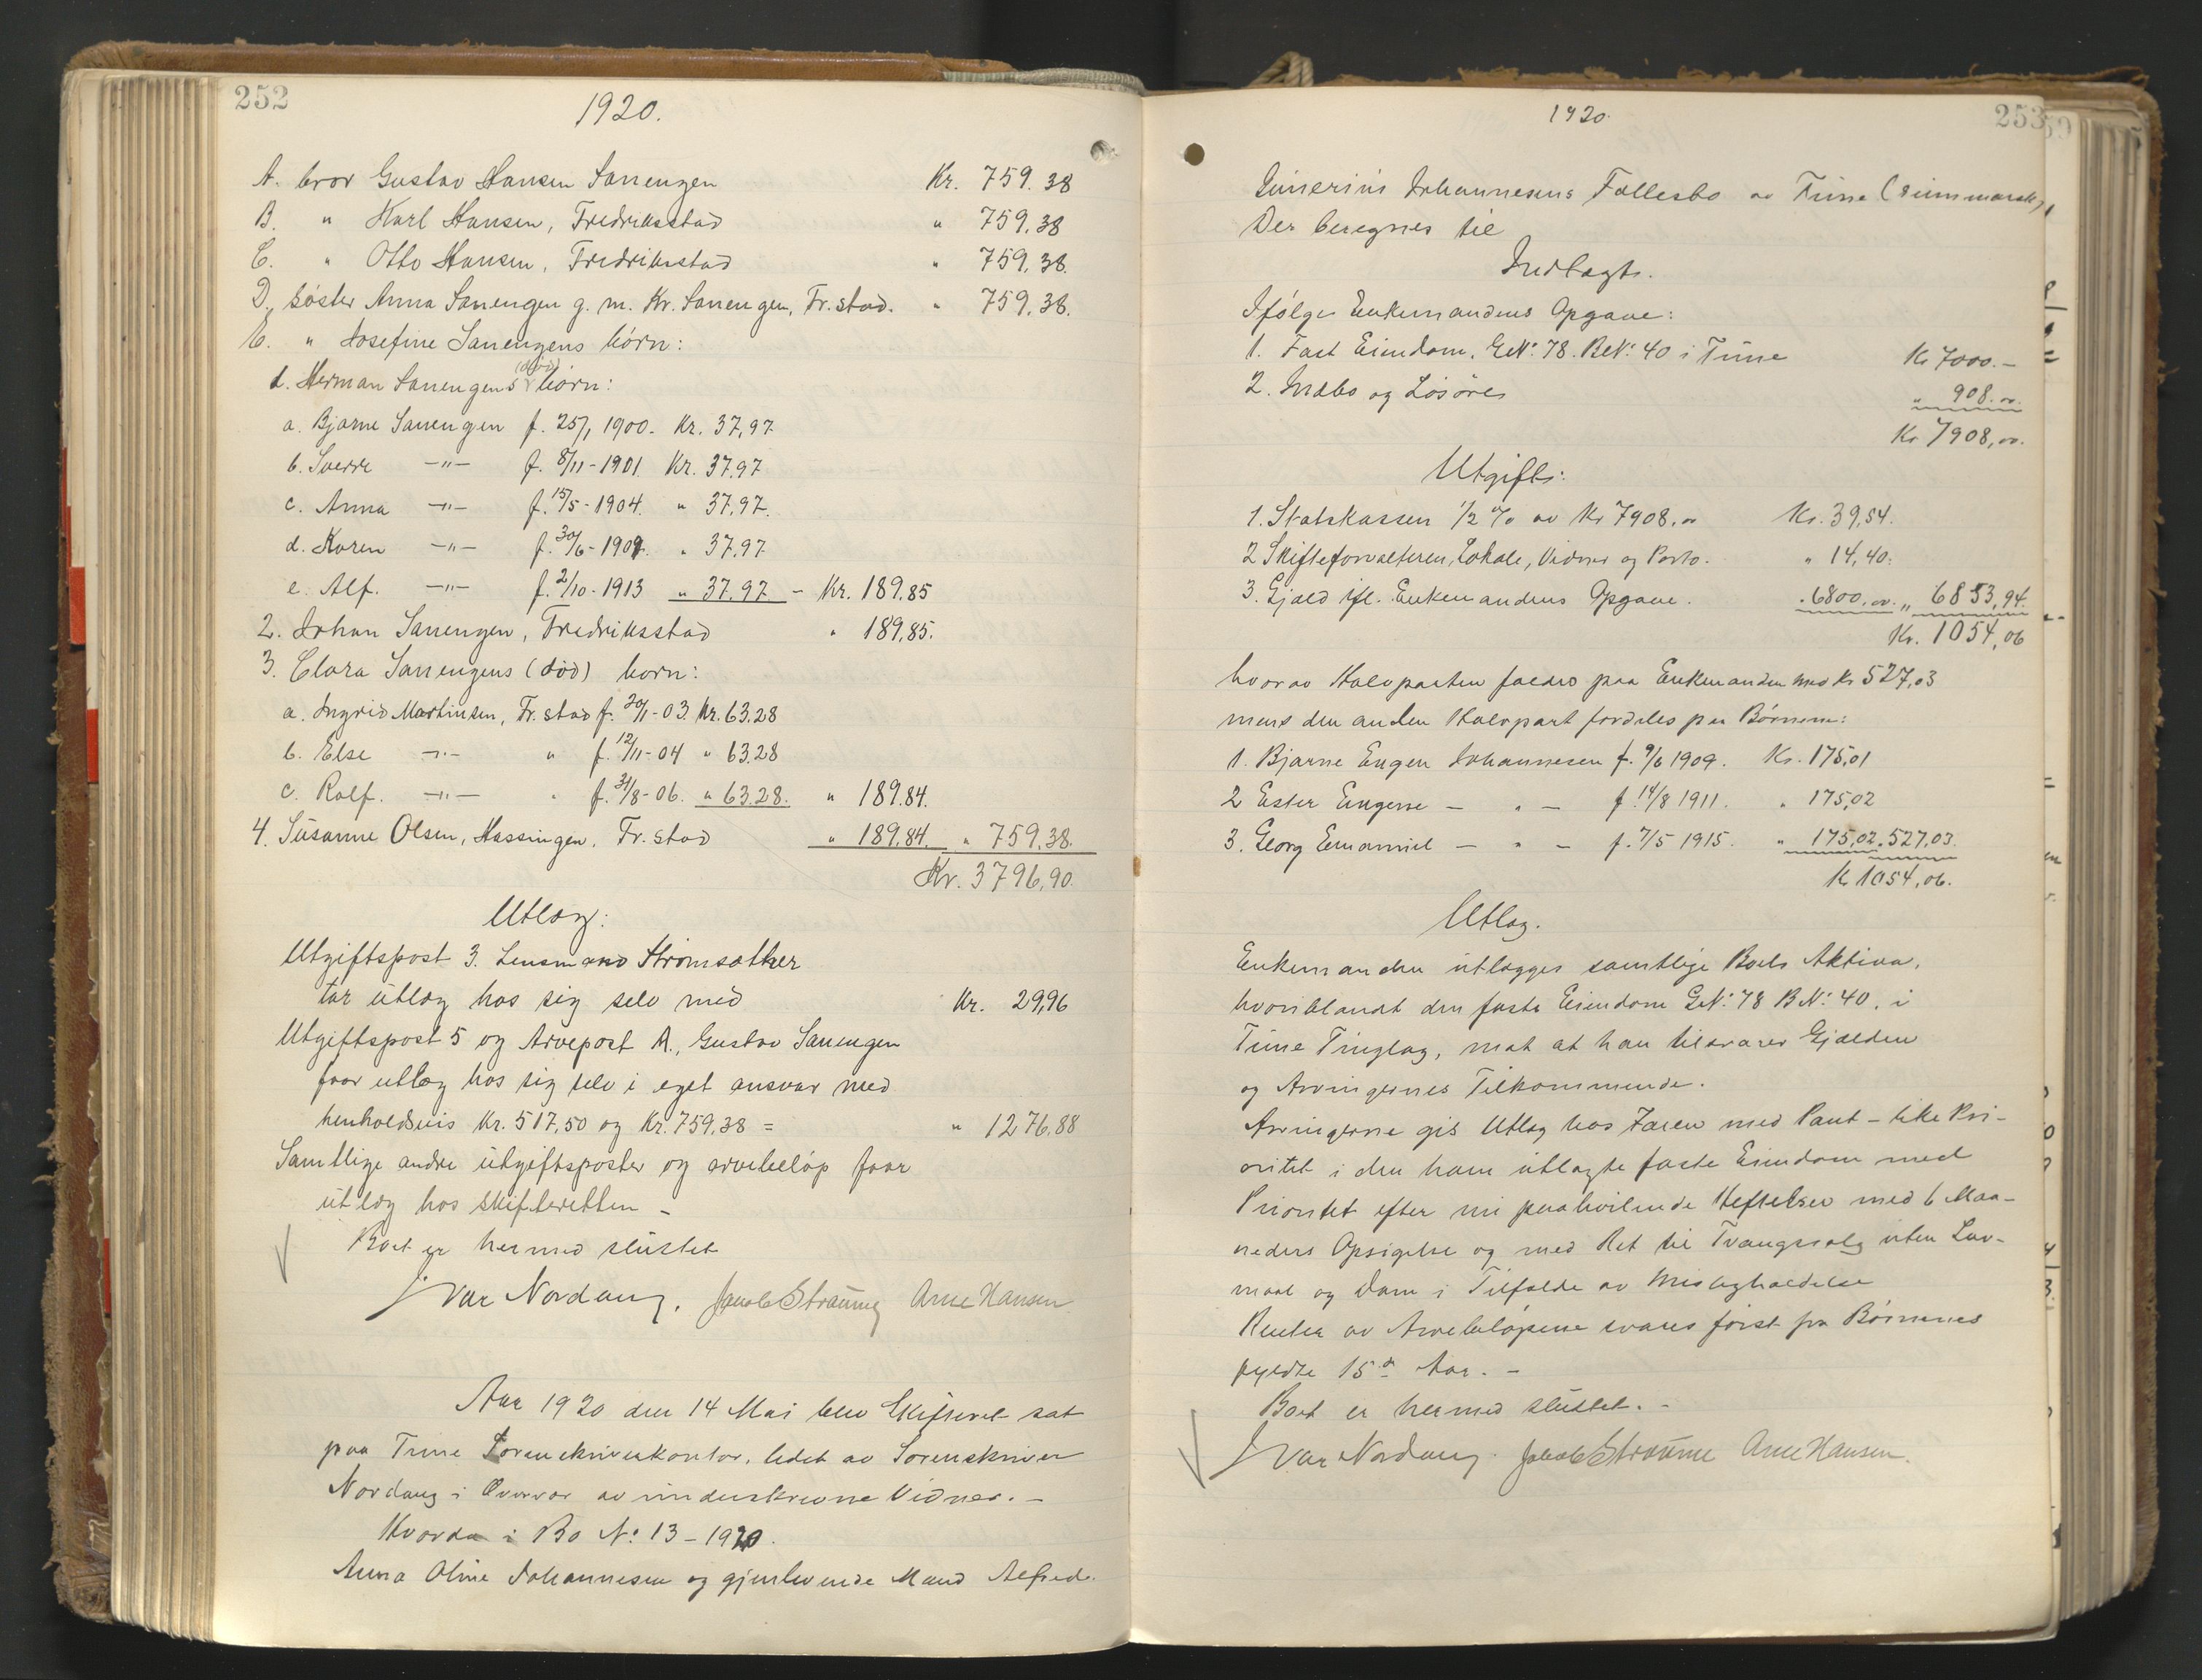 252
1920.
A. bror Gustav Hansen Sanengen Kr. 759.38
B. " Karl Hansen, Fredriksstad " 759,38
C. " Otto Hansen, Fredriksstad " 759,38.
D. søster Anna Sanengen g. m. Kr. Sanengen, Fr.stad. " 759,38.
E. " Josefine Sanengens børn:
1. Herman Sanengens (død) børn:
a. Bjarne Sanengen f. 25/1 1900. Kr. 37,97
b. Sverre -"- f. 8/11-1901 Kr. 37.97
c. Anna -"- f. 15/5-1904. " 37,97.
d. Karen -"- f. 30/6-1907. " 37,97
e. Alf. -"- f. 2/10-1913 " 37.97 - Kr. 189.85
2. Johan Sanengen, Fredriksstad " 189,85.
3. Clara Sanengens (død) born:
a. Ingrid Martinsen, Fr.stad f. 20/1-03. Kr. 63.28
b. Else -"- " f. 12/11-04 " 63.28
c. Rolf. -"- " f. 31/8-06. " 63.28. " 189.84.
4. Susanne Olsen, Hassingen, Fr.stad " 189.84. " 759,38.
Kr. 3796,90.
Utlæg:
Utgiftspost 3. Lensmand Strømsæther
tar utlæg hos sig selv med Kr. 29,96
Utgiftspost 5 og Arvepost A., Gustav Sanengen
faar utlæg hos sig selv i eget ansvar med
henholdsvis Kr. 517,50 og Kr. 759,38 = " 1276,88
Samtlige andre utgiftsposter og arvebeløp faar
utlæg hos skifteretten -
Boet er hermed sluttet
Ivar Nordang. Jakob Straume Arne Hansen
Aar 1920 den 14 Mai blev Skifteret sat
paa Tune Sorenskriverkontor, ledet av Sorenskriver
Nordang i Overvær av underskrevne Vidner. -
Hvorda i Bo No: 13 - 1920.
Anna Oline Johannesen og gjenlevende Mand Alfred
1920
253
Johannesens Fællesbo av Tune
Der beregnes til
Indtægt.
Ifølge Enkemandens Opgave:
1. Fast Eiendom, GNo: 78. BNo: 40 i Tune Kr 7000.-
2. Indbo og Løsøre " 908.oo.
Kr 7908,oo.
Utgift:
1. Statskassen 1/2 % av Kr 7908.oo Kr. 39,54.
2 Skifteforvalteren, Lokale, Vidner og Porto. " 14,40.
3. Gjæld ifl. Enkemandens Opgave. " 6800,oo. " 6853,94.
Kr. 1054,06
hvorav Halvparten falder paa Enkemanden med Kr 527,03
mens den anden Halvpart fordeles paa Børnene:
1. Bjarne Eugen Johannesen f. 9/6 1909. Kr. 175,01
2 Ester Eugene - " - f. 14/8 1911. " 175,02
3. Georg Emanuel - " - f. 7/5 1915. " 175,02. 527,03.
Kr 1054,06.
Utlæg.
Enkemanden utlægges samtlige Boets Aktiva,
hvoriblandt den faste Eiendom GNo: 78 BNo: 40, i
Tune Tinglag, mot at han tilsvarer Gjælden
og Arvingernes Tilkommende.
Arvingerne gis Utlæg hos Faren med Pant - like Pri-
oritet i den ham utlagte faste Eiendom med
Prioritet efter nu paahvilende Heftelser med 6 Maa-
neders Opsigelse og med Ret til Tvangssalg uten Lov-
maal og Dom i Tilfælde av Misligholdelse
Renter av Arvebeløpene svares først fra Børnenes
fyldte 15de Aar. -
Boet er hermed sluttet. -
Ivar Nordang. Jakob Straume Arne Hansen.